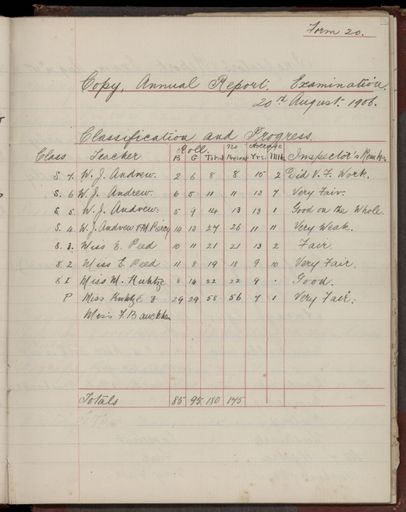 Form 20.
Copy, Annual Report. Examination.
20th August 1906.
Classification and Progress
Roll. No Average
Class Teacher B G Total Present Yrs. Mths Inspector's Remarks
S. 7. W. J. Andrew. 2 6 8 8 15 2 Did V. F. Work.
S. 6 W. J. Andrew. 6 5 11 11 13 7 Very Fair.
S. 5 W. J. Andrew. 5 9 14 13 13 1 Good on the Whole.
S. 4 W. J. Andrew 14 13 27 26 11 11 Very Weak.
S. 3. Miss E. Peed 10 11 21 21 13 2 Fair
S. 2 Miss E. Peed 11 8 19 18 9 10 Very Fair.
S 1 Miss M. Kuhtze 8 14 22 22 9 . Good.
P Miss Kuhtze & 29 29 58 56 7 1 Very Fair
Miss F.
Totals 85 95 180 175